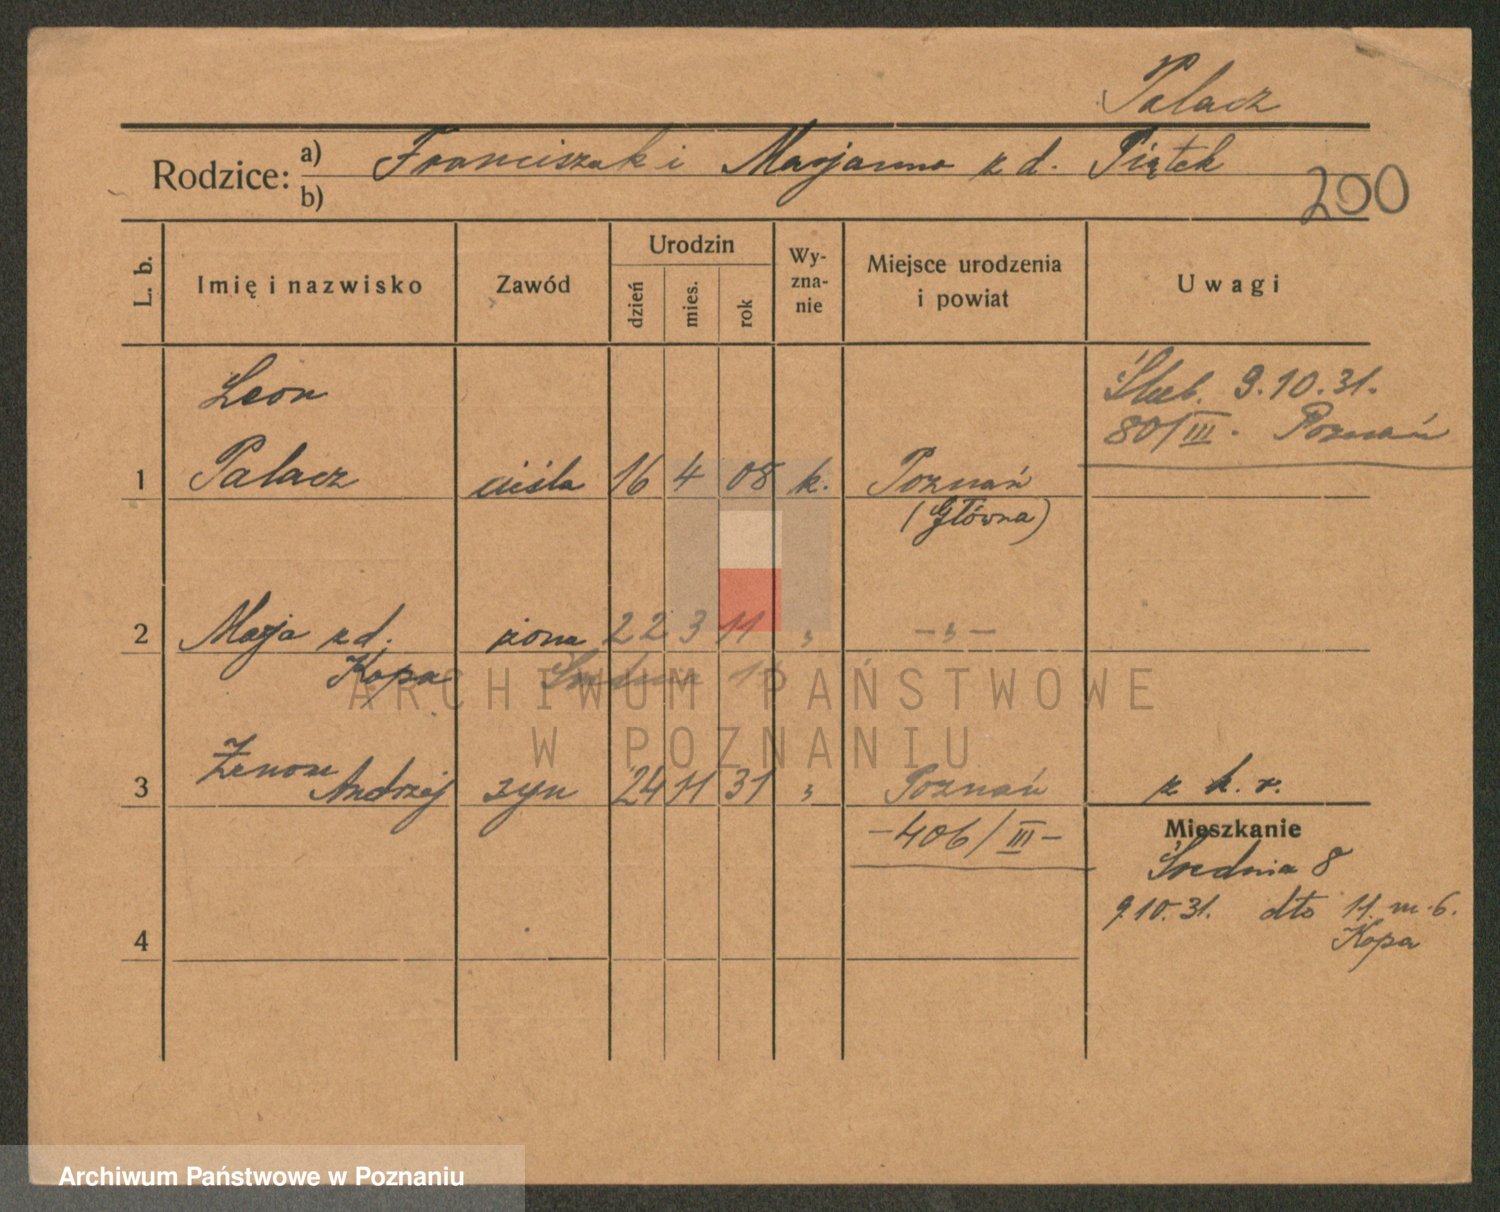 Palacz
Rodzice: a) Franciszek i Marjanna z d. Piątek
b)
200
L. b. Imię i nazwisko Zawód Urodzin dzień mies. rok Wy-zna-nie Miejsce urodzenia i powiat Uwagi
Leon Ślub. 9.10.31.
80/III. Poznań
1 Palacz cieśla 16 4 08 k. Poznań
(Główna)
2 Marja z d. żona 22 3 11 „ — „ —
Kopa Średnia 11
Zenon
3 Andrzej syn 24 11 31 „ Poznań z k. r.
—406/III—
Mieszkanie
Średnia 8
9.10.31. dto 11. m. 6.
Kopa
4
ARCHIWUM PAŃSTWOWE
W POZNANIU
Archiwum Państwowe w Poznaniu